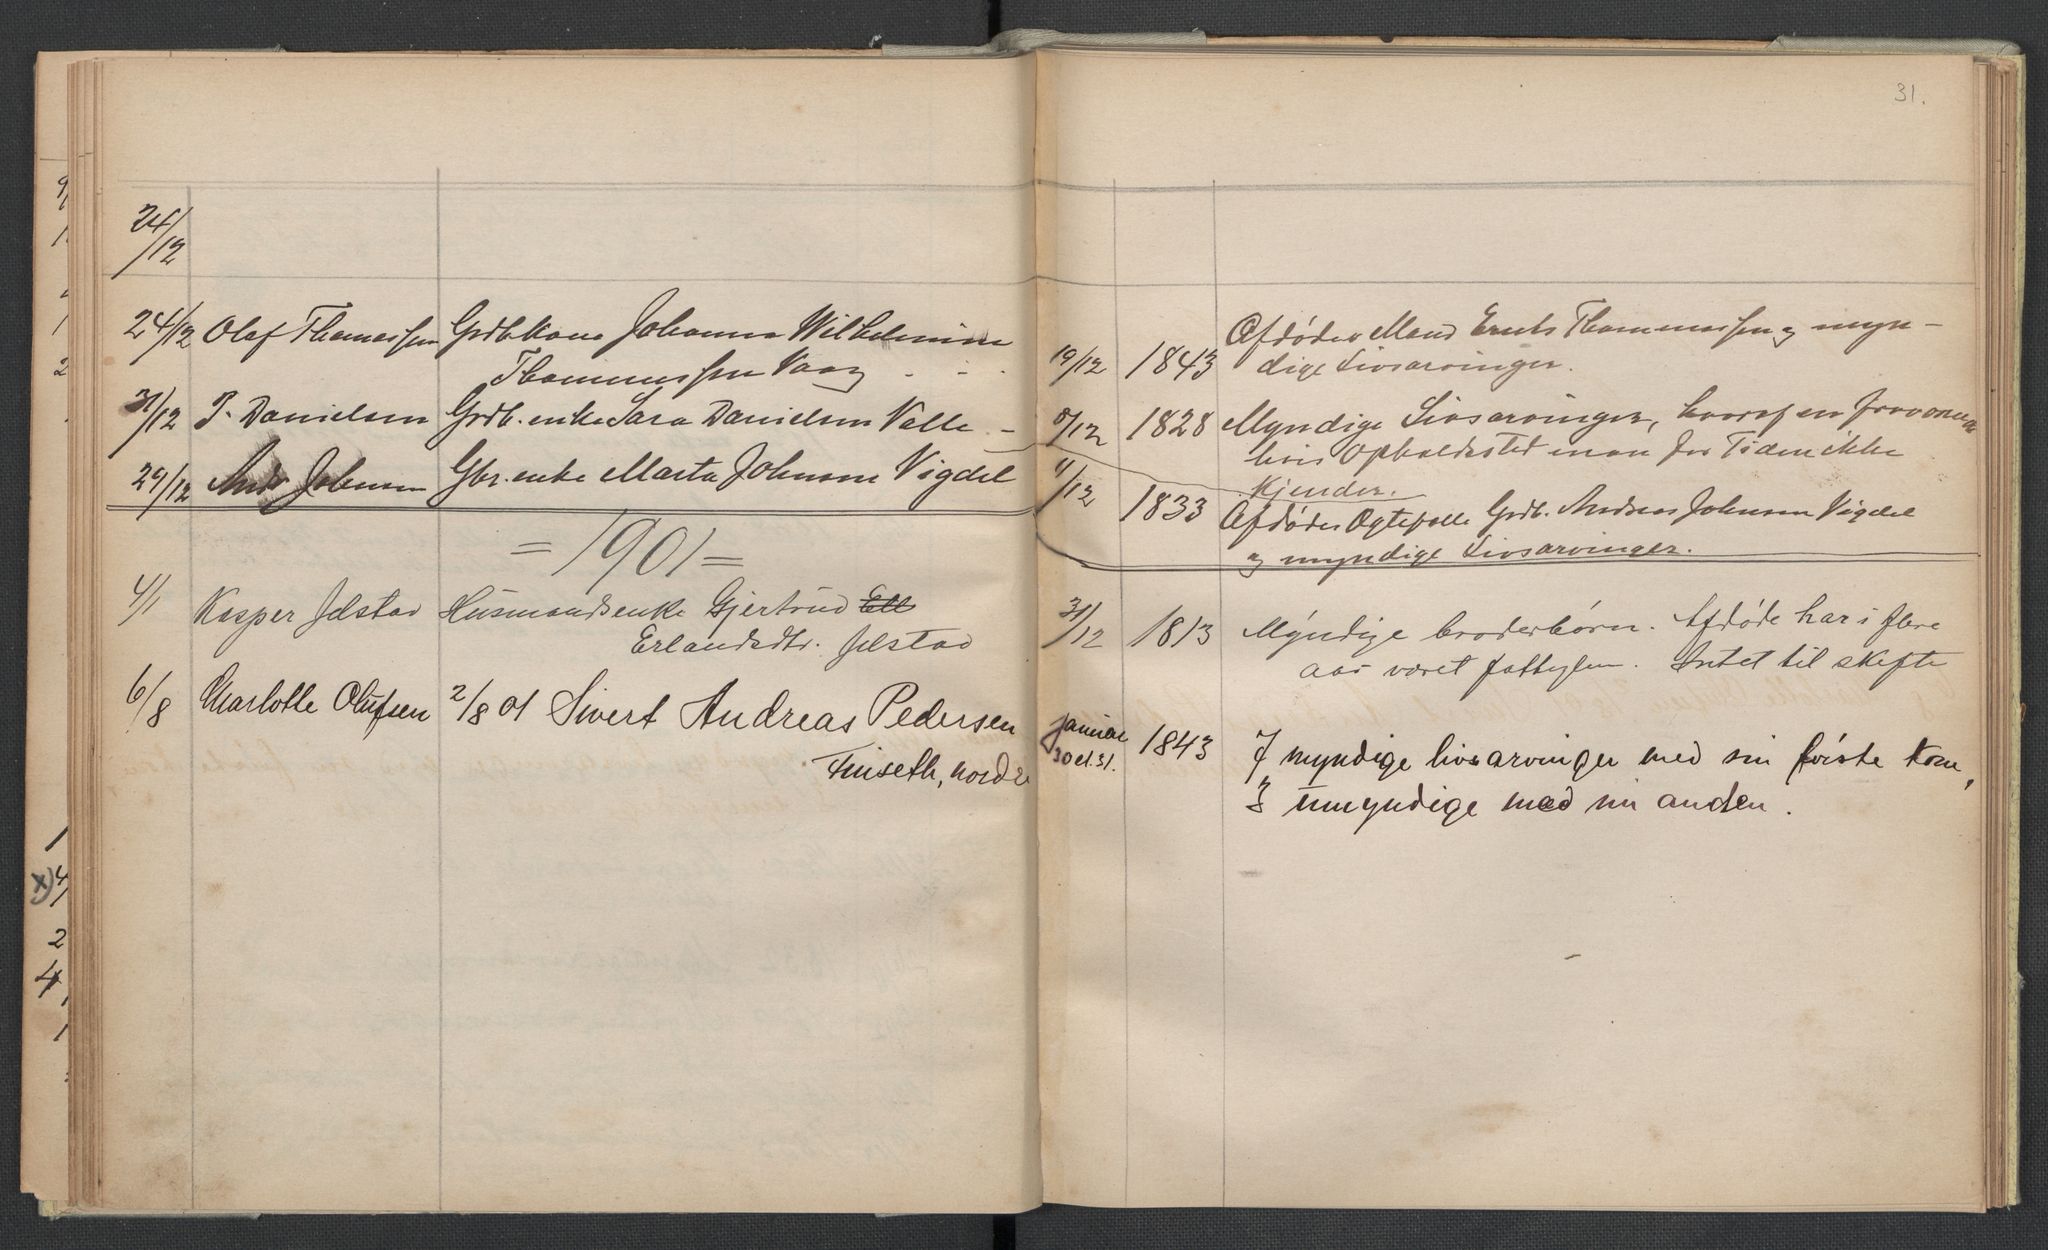 31.
24/12
24/12 Olaf Thomassen Grdb. kone Johanna Wilhelmine
Thommessen Vaag - - -
31/12 P. Danielsen Grdb. enke Sara Danielsen Valle -
29/12 Andr Johnsen Gbr. enke Marta Johnsen Vigdel
= 1901 =
4/1 Kasper Jelstad Husmandsenke Gjertrud Ell
Erlandsdtr. Jelstad
6/8 Charlotte Olufsen 2/8 01 Sivert Andreas Pedersen
Finseth, nordre
Afdødes Mand Thommessen og myn-
19/12 1843 dige Livsarvinger.
8/12 1828 Myndige Livsarvinger, hvoraf en
hvis Opholdssted man for Tiden ikke
4/12 kjender.
1833 Afdødes Ægtefælle Grdb. Andreas Johnsen Vigdel
og myndige Livsarvinger.
31/12 1813 Myndige broderbørn. Afdøde har i flere
aar været fattiglem. Intet til skifte
januar
30 et 31. 1843 7 myndige livsarvinger med sin første kone,
3 umyndige med sin anden.
x) 4/1
1
2
4
1